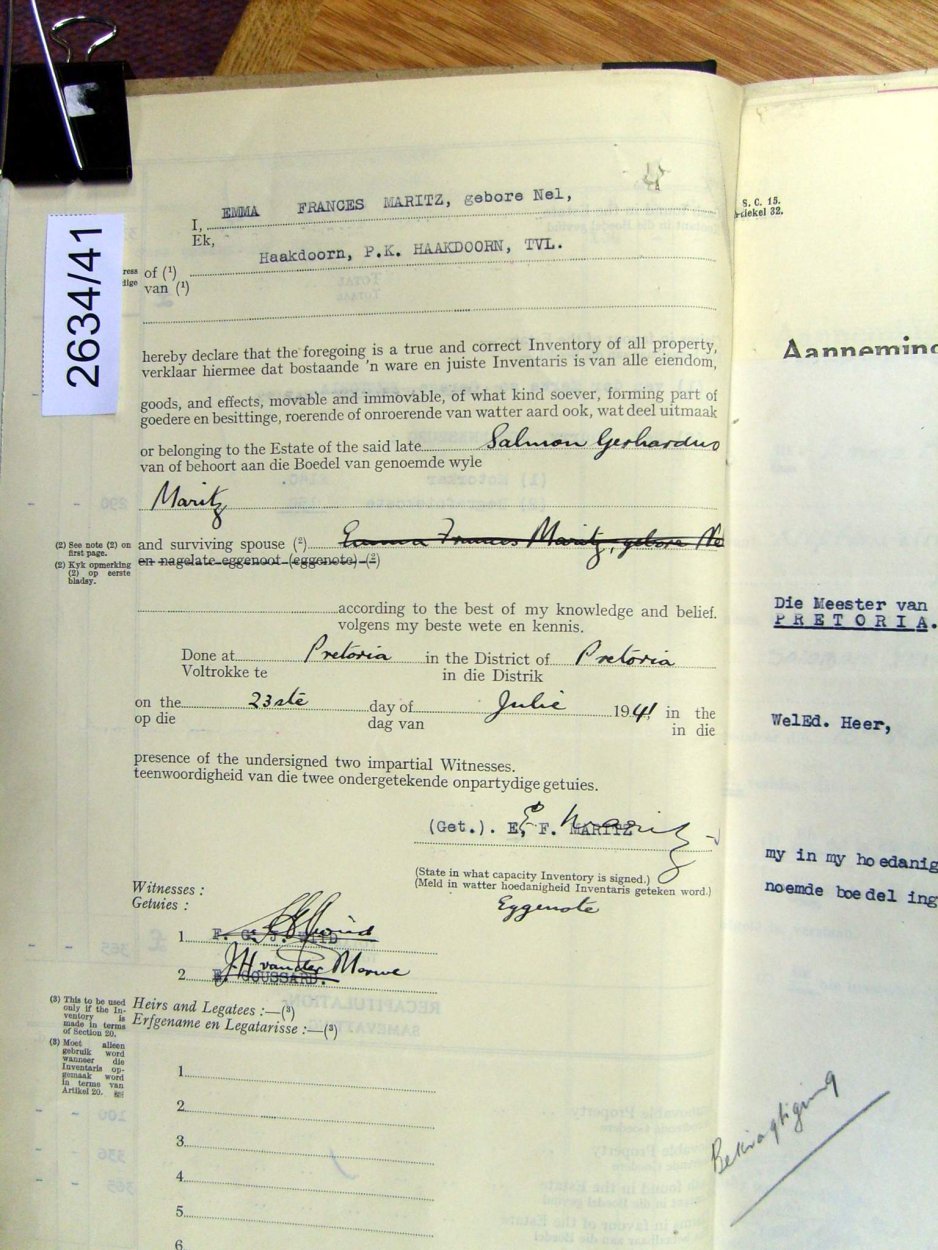 2634/41
4
EMMA FRANCES MARITZ, gebore Nel,
I,
Ek,
Haakdoorn, P.K. HAAKDOORN, TVL.
ress of (¹)
dige van (¹)
hereby declare that the foregoing is a true and correct Inventory of all property,
verklaar hiermee dat bostaande 'n ware en juiste Inventaris is van alle eiendom,
goods, and effects, movable and immovable, of what kind soever, forming part of
goedere en besittinge, roerende of onroerende van watter aard ook, wat deel uitmaak
or belonging to the Estate of the said late Salmon Gerhardus
van of behoort aan die Boedel van genoemde wyle
Maritz
(2) See note (2) on first page.
(2) Kyk opmerking (2) op eerste bladsy.
and surviving spouse (²) Emma Frances Maritz, gebore Ne
en nagelate eggenoot (eggenote) (²)
according to the best of my knowledge and belief.
volgens my beste wete en kennis.
Done at Pretoria in the District of Pretoria
Voltrokke te in die Distrik
on the 23ste day of Julie 1941 in the
op die dag van in die
presence of the undersigned two impartial Witnesses.
teenwoordigheid van die twee ondergetekende onpartydige getuies.
(Get.). E. F. MARITZ
E F Maritz
(State in what capacity Inventory is signed.)
(Meld in watter hoedanigheid Inventaris geteken word.)
Eggenote
Witnesses :
Getuies :
1.
2 J H van der Merwe
E. GOUSSARD.
(3) This to be used only if the Inventory is made in terms of Section 20.
(3) Moet alleen gebruik word wanneer die Inventaris opgemaak word in terme van Artikel 20.
Heirs and Legatees :—(³)
Erfgename en Legatarisse :—(³)
1
2
3
4
5
6
S. C. 15.
Artiekel 32.
Aanneming
Die Meester van
PRETORIA.
WelEd. Heer,
my in my hoedanig
noemde boedel ing
Bekragtiging